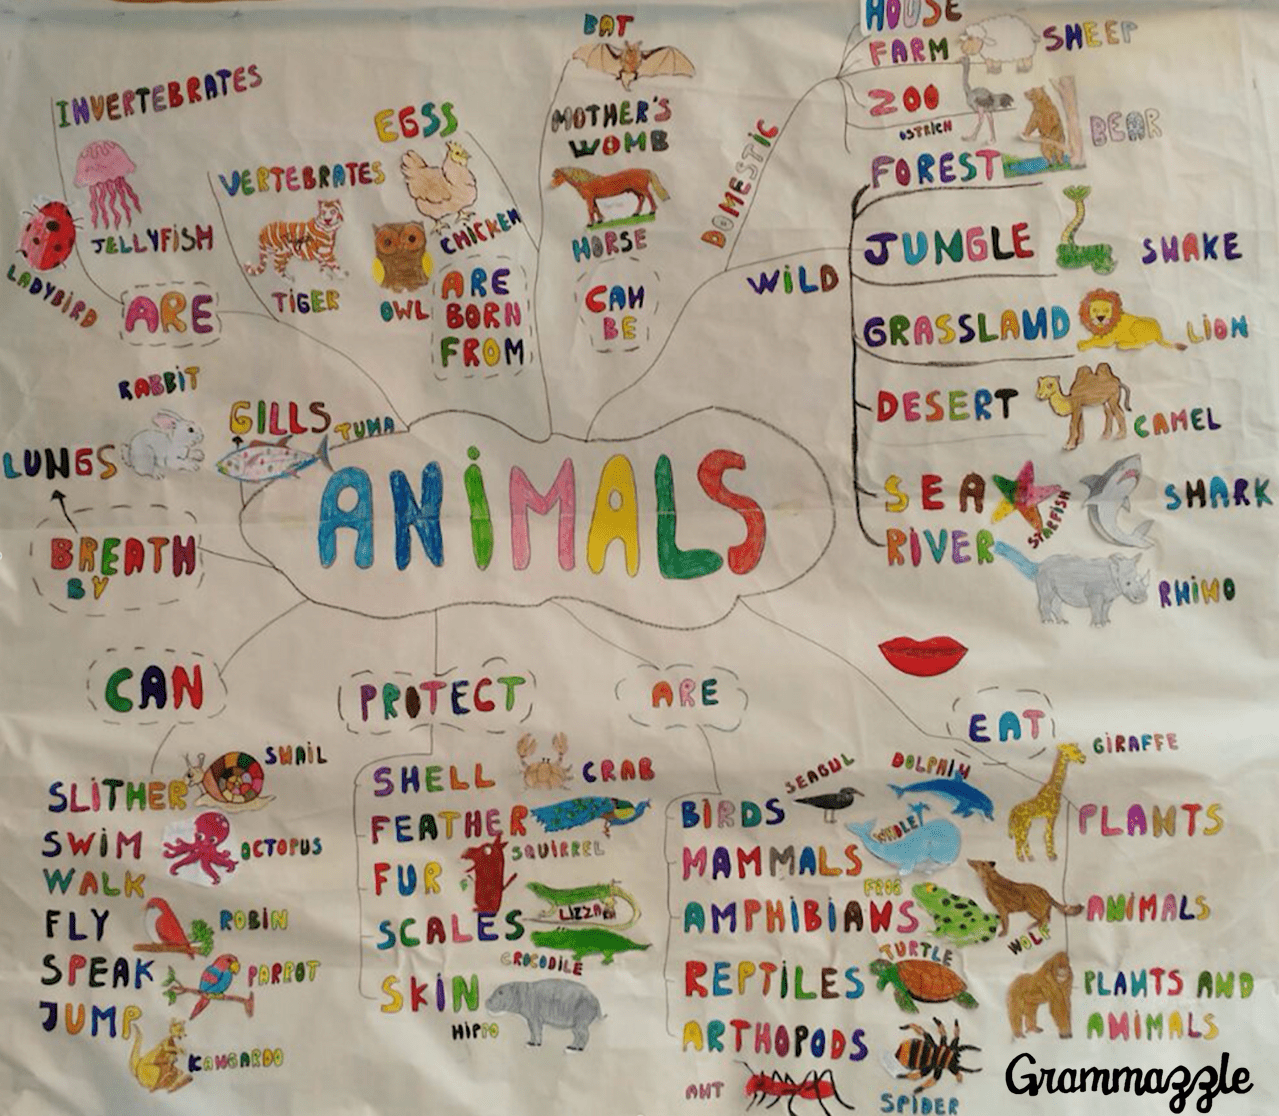 INVERTEBRATES
JELLYFISH
LADYBIRD
ARE
VERTEBRATES
TIGER
EGSS
CHICKEN
OWL
ARE
BORN
FROM
BAT
MOTHER'S
WOMB
HORSE
CAN
BE
DOMESTIC
HOUSE
FARM
SHEEP
ZOO
OSTRICH
BEAR
WiLD
FOREST
JUNGLE
SNAKE
GRASSLAND
LiON
DESERT
CAMEL
SEA
STARFISH
SHARK
RIVER
RHiNO
RABBiT
LUNGS
GILLS
TUNA
BREATH
BY
ANiMALS
CAN
SLiTHER
SNAiL
SWiM
OCTOPUS
WALK
FLY
ROBiN
SPEAK
PARROT
JUMP
KANGAROO
PROTECT
SHELL
CRAB
FEATHER
SQUIRREL
FUR
SCALES
LIZZARD
CROCODiLE
SKiN
HiPPO
ARE
BiRDS
SEAGUL
DOLPHiN
MAMMALS
WHALE
FROG
AMPHiBiANS
WOLF
REPTiLES
TURTLE
ARTHOPODS
ANT
SPiDER
EAT
GiRAFFE
PLANTS
ANiMALS
PLANTS AND
ANiMALS
Grammazzle